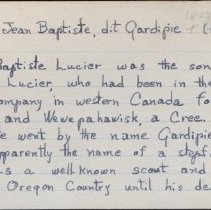 Jean Baptiste, dit Gardipie (
Baptiste Lucier was the son
Lucier, who had been in the
ompany in western Canada fo
and Wewepahawisk, a Cree.
e went by the name Gardipie
pparently the name of a stepf
s a well known scout and
Oregon Country until his de